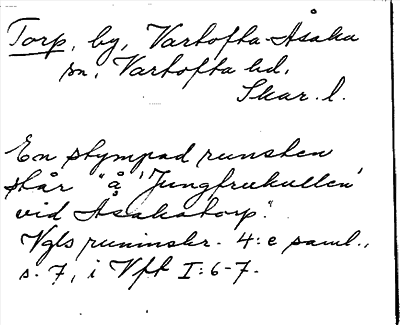 Torp, by, Vartofta-Åsaka
sn, Vartofta hd,
Skar. l.
En stympad runsten
står "å 'Jungfrukullen'
vid Åsakatorp."
Vgls runinskr. 4:e saml.,
s. 7, i Vft I:6-7.